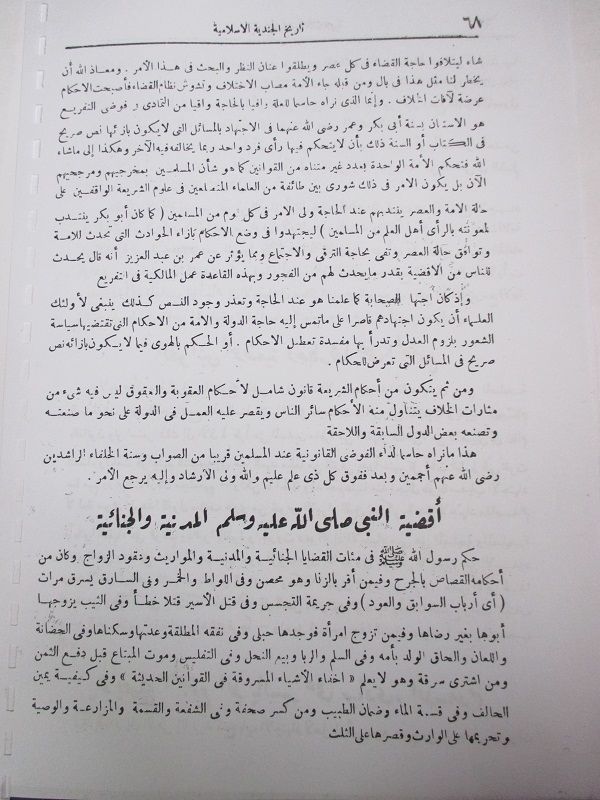 ٦٨
تاريخ الجندية الاسلامية
شاء ليتلافوا حاجة القضاء فى كل عصر ويطلقوا عنان النظر والبحث فى هذا الأمر . ومعاذ الله أن
يخطر لنا مثل هذا فى بال ومن قبله جاء الأمة مصاب الاختلاف وتشوش نظام القضاء فأصبحت الأحكام
عرضة لآفات الخلاف . وإنما الذى نراه حاسما للعلة وافيا بالحاجة واقيا من التمادى فى فوضى التفريع
هو الاستنان بسنة أبى بكر وعمر رضى الله عنهما فى الاجتهاد بالمسائل التى لا يكون بازائها نص صريح
فى الكتاب أو السنة ذلك بأن لا يتحكم فيها رأى فرد واحد ربما يخالفه فيه الآخر وهكذا إلى ماشاء
الله فتحكم الأمة الواحدة بعدد غير متناه من القوانين كما هو شأن المسلمين بمخرجيهم ومرجحيهم
الآن بل يكون الامر فى ذلك شورى بين طائفة من العلماء المتضلعين فى علوم الشريعة الواقفين على
حالة الامة والعصر ينتدبهم عند الحاجة ولى الامر فى كل قوم من المسلمين ( كما كان أبو بكر ينتدب
لمعونته بالرأى أهل العلم من المسلمين ) ليجتهدوا فى وضع الاحكام بازاء الحوادث التى تحدث للامة
وتوافق حالة العصر وتفى بحاجة الترقى والاجتماع ومما يؤثر عن عمر بن عبد العزيز أنه قال يحدث
للناس من الأقضية بقدر ما يحدث لهم من الفجور وبهذه القاعدة عمل المالكية فى التفريع
وإذ كان اجتهاد الصحابة كما علمنا هو عند الحاجة وتعذر وجود النص كذلك ينبغى لأولئك
العلماء أن يكون اجتهادهم قاصرا على ماتمس إليه حاجة الدولة والامة من الاحكام التى تقتضيها سياسة
الشعور بلزوم العدل وتدرأ بها مفسدة تعطل الاحكام . أو الحكم بالهوى فيما لا يكون بازائه نص
صريح فى المسائل التى تعرض للحكام .
ومن ثم يتكون من أحكام الشريعة قانون شامل لأحكام العقوبة والعقوق ليس فيه شىء من
مثارات الخلاف يتناول منه الأحكام سائر الناس ويقصر عليه العمل فى الدولة على نحو ما صنعته
وتصنعه بعض الدول السابقة واللاحقة
هذا مانراه حاسما لداء الفوضى القانونية عند المسلمين قريبا من الصواب وسنة الخلفاء الراشدين
رضى الله عنهم أجمعين وبعد ففوق كل ذى علم عليم والله ولى الارشاد وإليه يرجع الأمر .
أقضية النبى صلى الله عليه وسلم المدنية والجنائية
حكم رسول الله ﷺ فى مئات القضايا الجنائية والمدنية والمواريث وعقود الزواج وكان من
أحكامه القصاص بالجرح وفيمن أقر بالزنا وهو محصن وفى اللواط والخمر وفى السارق يسرق مرات
( أى أرباب السوابق والعود ) وفى جريمة التجسس وفى قتل الأسير قتلا خطأ وفى الثيب يزوجها
أبوها بغير رضاها وفيمن تزوج امرأة فوجدها حبلى وفى نفقة المطلقة وعدتها وسكناها وفى الحضانة
واللعان والحاق الولد بأمه وفى السلم والربا وبيع النحل وفى التفليس وموت المبتاع قبل دفع الثمن
ومن اشترى سرقة وهو لا يعلم « اخفاء الأشياء المسروقة فى القوانين الحديثة » وفى كيفية يمين
الحالف وفى قسمة الماء وضمان الطبيب ومن كسر صحفة وفى الشفعة والقسمة والمزارعة والوصية
وتحريمها على الوارث وقصرها على الثلث